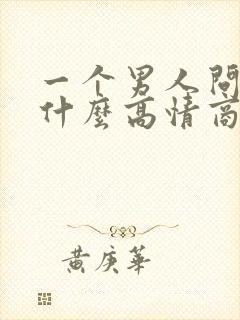 一个男人問
什麼高情商
黄庚華